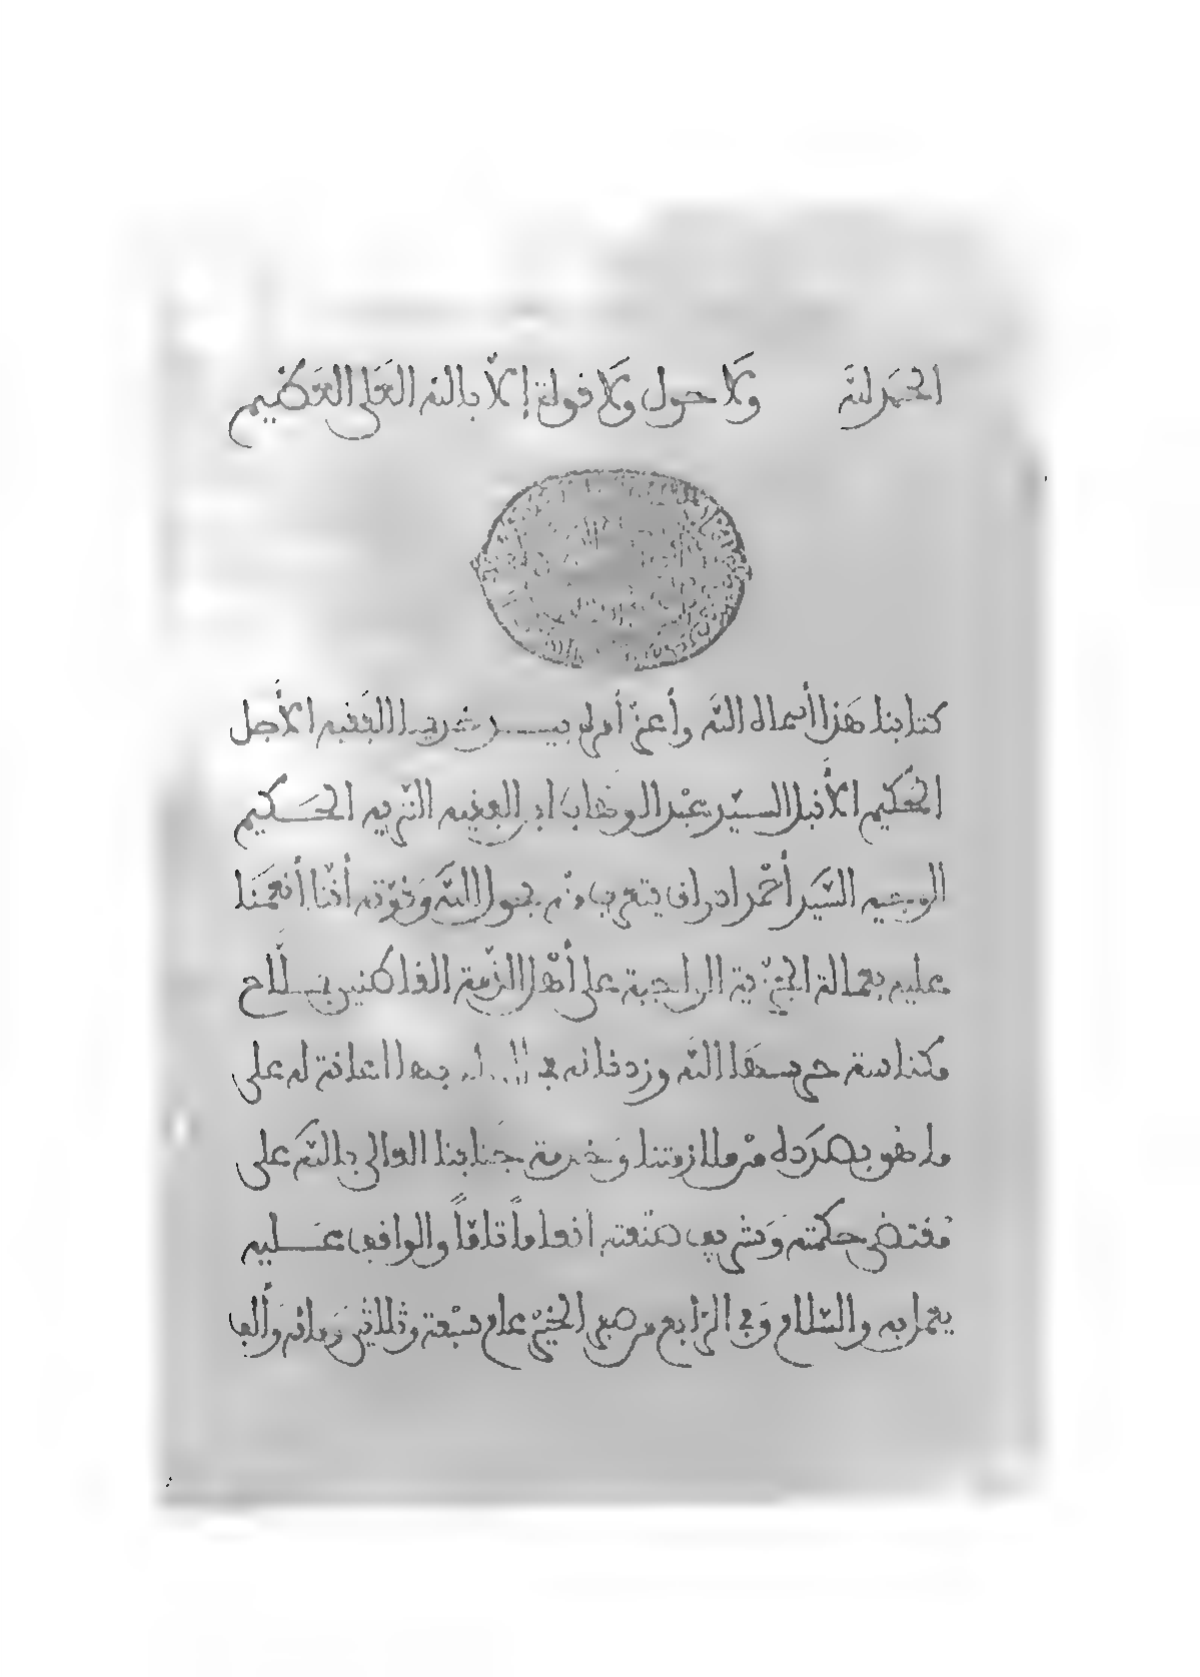 الحمد لله ولا حول ولا قوة إلا بالله العلي العظيم
كتابنا هذا أسماه الله وأعز أمره بيد خديمنا الفقيه الأجل
الحكيم الأنبل السيد عبد الوهاب ابن الفقيه النزيه الحكيم
الوجيه السيد أحمد ادراق يتعرف منه بحول الله وقوته أننا أنعمنا
عليه بعمالة الجزية الواجبة على أهل الذمة القاطنين بملاح
مكناسة حرسها الله وزدناه اعانة له على
ما هو بصدده من ملازمتنا وخدمة جنابنا العالي بالله على
مقتضى حكمته وشريف صنعته انعاما تاما والواقف عليه
يعمل به والسلام وفي الرابع من صفر الخير عام سبعة وثلاثين ومائة وألف